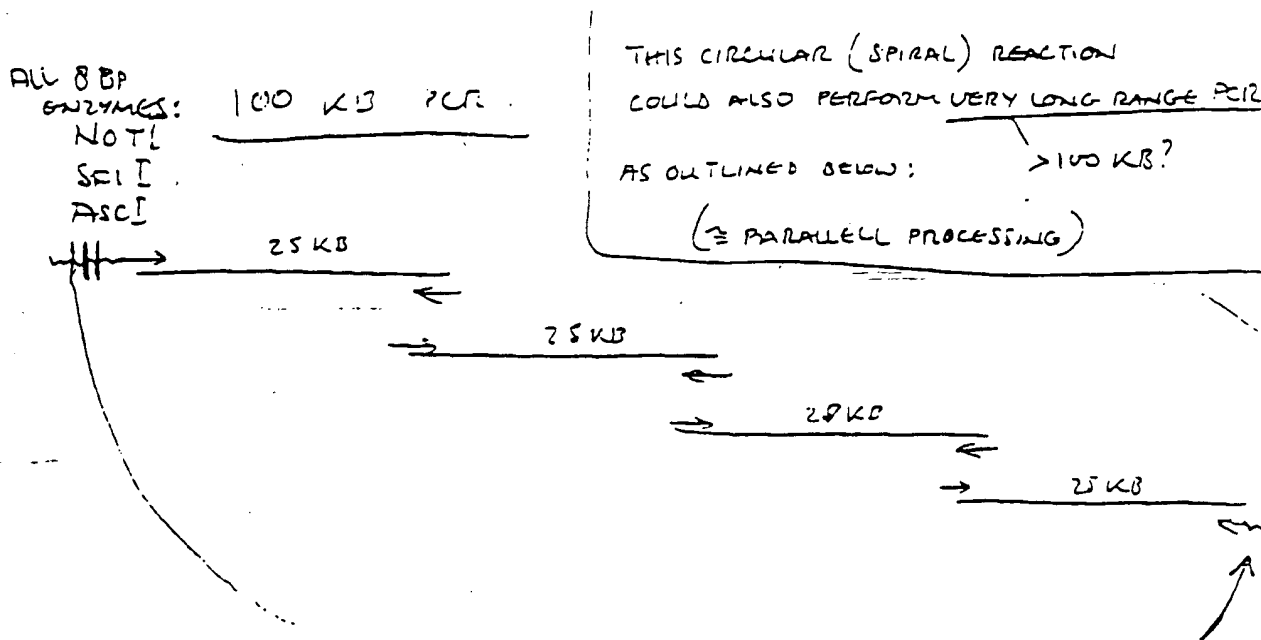 ALL 8 BP
ENZYMES:
NOTI
SFI I
ASCI
100 KB PCR
THIS CIRCULAR (SPIRAL) REACTION
COULD ALSO PERFORM VERY LONG RANGE PCR
AS OUTLINED BELOW:
>100 KB?
(≅ PARALLELL PROCESSING)
25 KB
25 KB
28 KB
25 KB